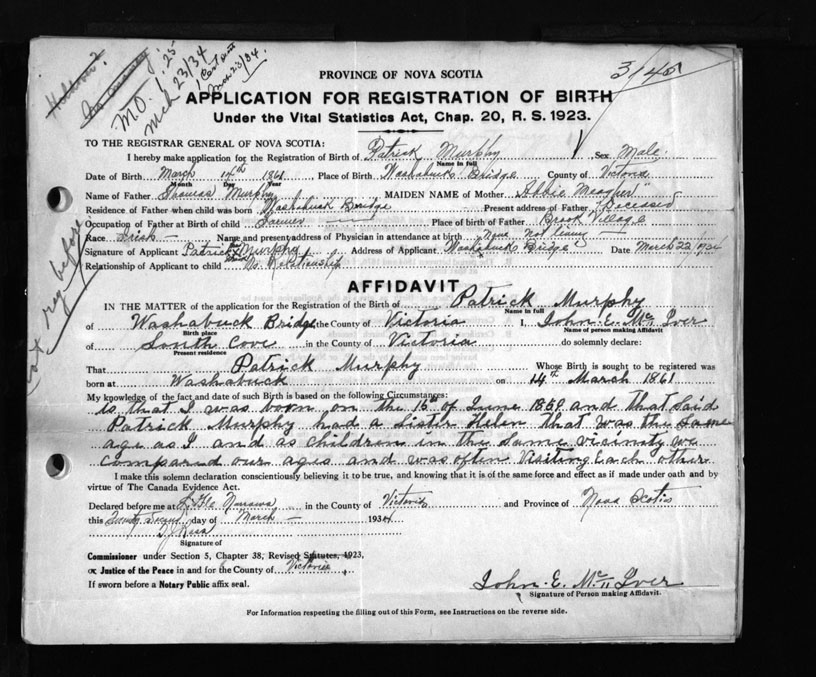 M.O. 1.25
Mch 23/34
Mch 23/34.
3145
PROVINCE OF NOVA SCOTIA
APPLICATION FOR REGISTRATION OF BIRTH
Under the Vital Statistics Act, Chap. 20, R. S. 1923.
TO THE REGISTRAR GENERAL OF NOVA SCOTIA:
I hereby make application for the Registration of Birth of Patrick Murphy Sex Male
Name in full
Date of Birth March 14th 1861 Place of Birth Washabuck Bridge County of Victoria
Month Day Year
Name of Father Thomas Murphy MAIDEN NAME of Mother Abbie Meagher
Residence of Father when child was born Washabuck Bridge Present address of Father Deceased
Occupation of Father at Birth of child Farmer Place of birth of Father Brook Village
Race Irish Name and present address of Physician in attendance at birth None not living
Signature of Applicant Patrick Murphy Address of Applicant Washabuck Bridge Date March 22 1934
Relationship of Applicant to child No Relationship
not reg before
AFFIDAVIT
IN THE MATTER of the application for the Registration of the Birth of Patrick Murphy
Name in full
of Washabuck Bridge the County of Victoria I, John E. Mc Iver
Birth place Name of person making Affidavit
of South Cove in the County of Victoria do solemnly declare:
Present residence
That Patrick Murphy Whose Birth is sought to be registered was
born at Washabuck on 14th March 1861
My knowledge of the fact and date of such Birth is based on the following Circumstances:
is that I was born on the 15th of June 1859 and that Said
Patrick Murphy had a Sister Helen that was the Same
age as I and as children in the Same vicinity we
compard our ages and was often Visiting Each other
I make this solemn declaration conscientiously believing it to be true, and knowing that it is of the same force and effect as if made under oath and by
virtue of The Canada Evidence Act.
Declared before me at in the County of Victoria and Province of Nova Scotia
this Twenty Second day of March 1934
Signature of
Commissioner under Section 5, Chapter 38, Revised Statutes, 1923,
or Justice of the Peace in and for the County of Victoria
If sworn before a Notary Public affix seal.
John. E. Mc Iver
Signature of Person making Affidavit.
For Information respecting the filling out of this Form, see Instructions on the reverse side.